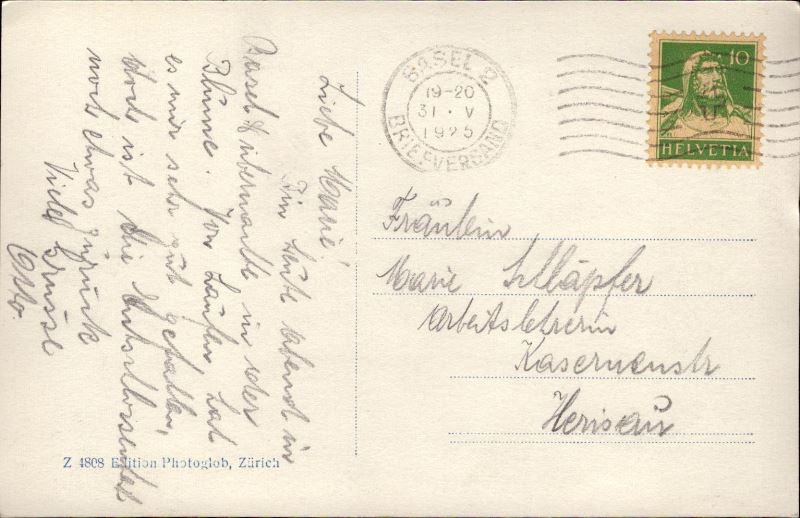 Liebe Marie!
Bin heute Abend in
Basel & übernachte in der
Blume. In Laufen hat
es mir sehr gut gefallen,
dort ist die
noch etwas zurück
Viele Grüsse
Otto.
BASEL 2
19-20
31·V
1925
BRIEFVERSAND
10
HELVETIA
Fräulein
Marie Schläpfer
Arbeitslehrerin
Kasernenstr
Herisau
Z 4808 Edition Photoglob, Zürich